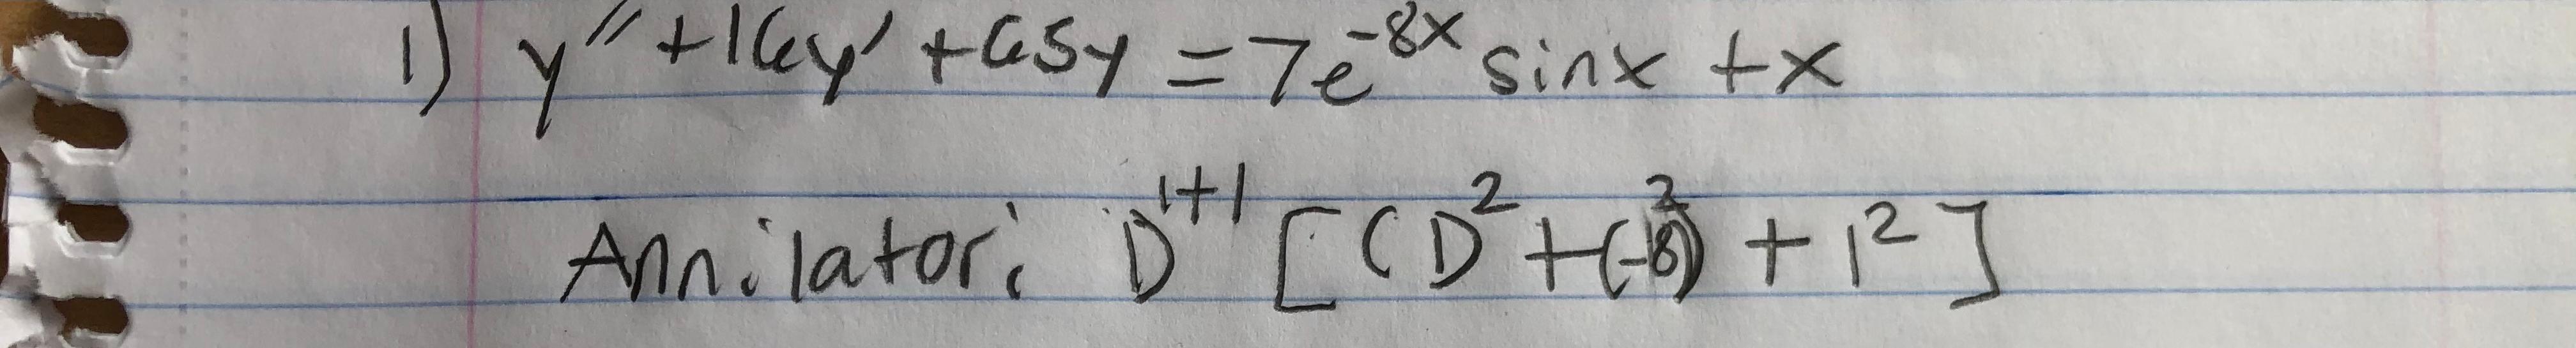 1) y″ + 16y′ + 65y = 7e^{-8x} sinx + x
Annilator: D^{1+1} [(D^2 + (-8)^2) + 1^2]